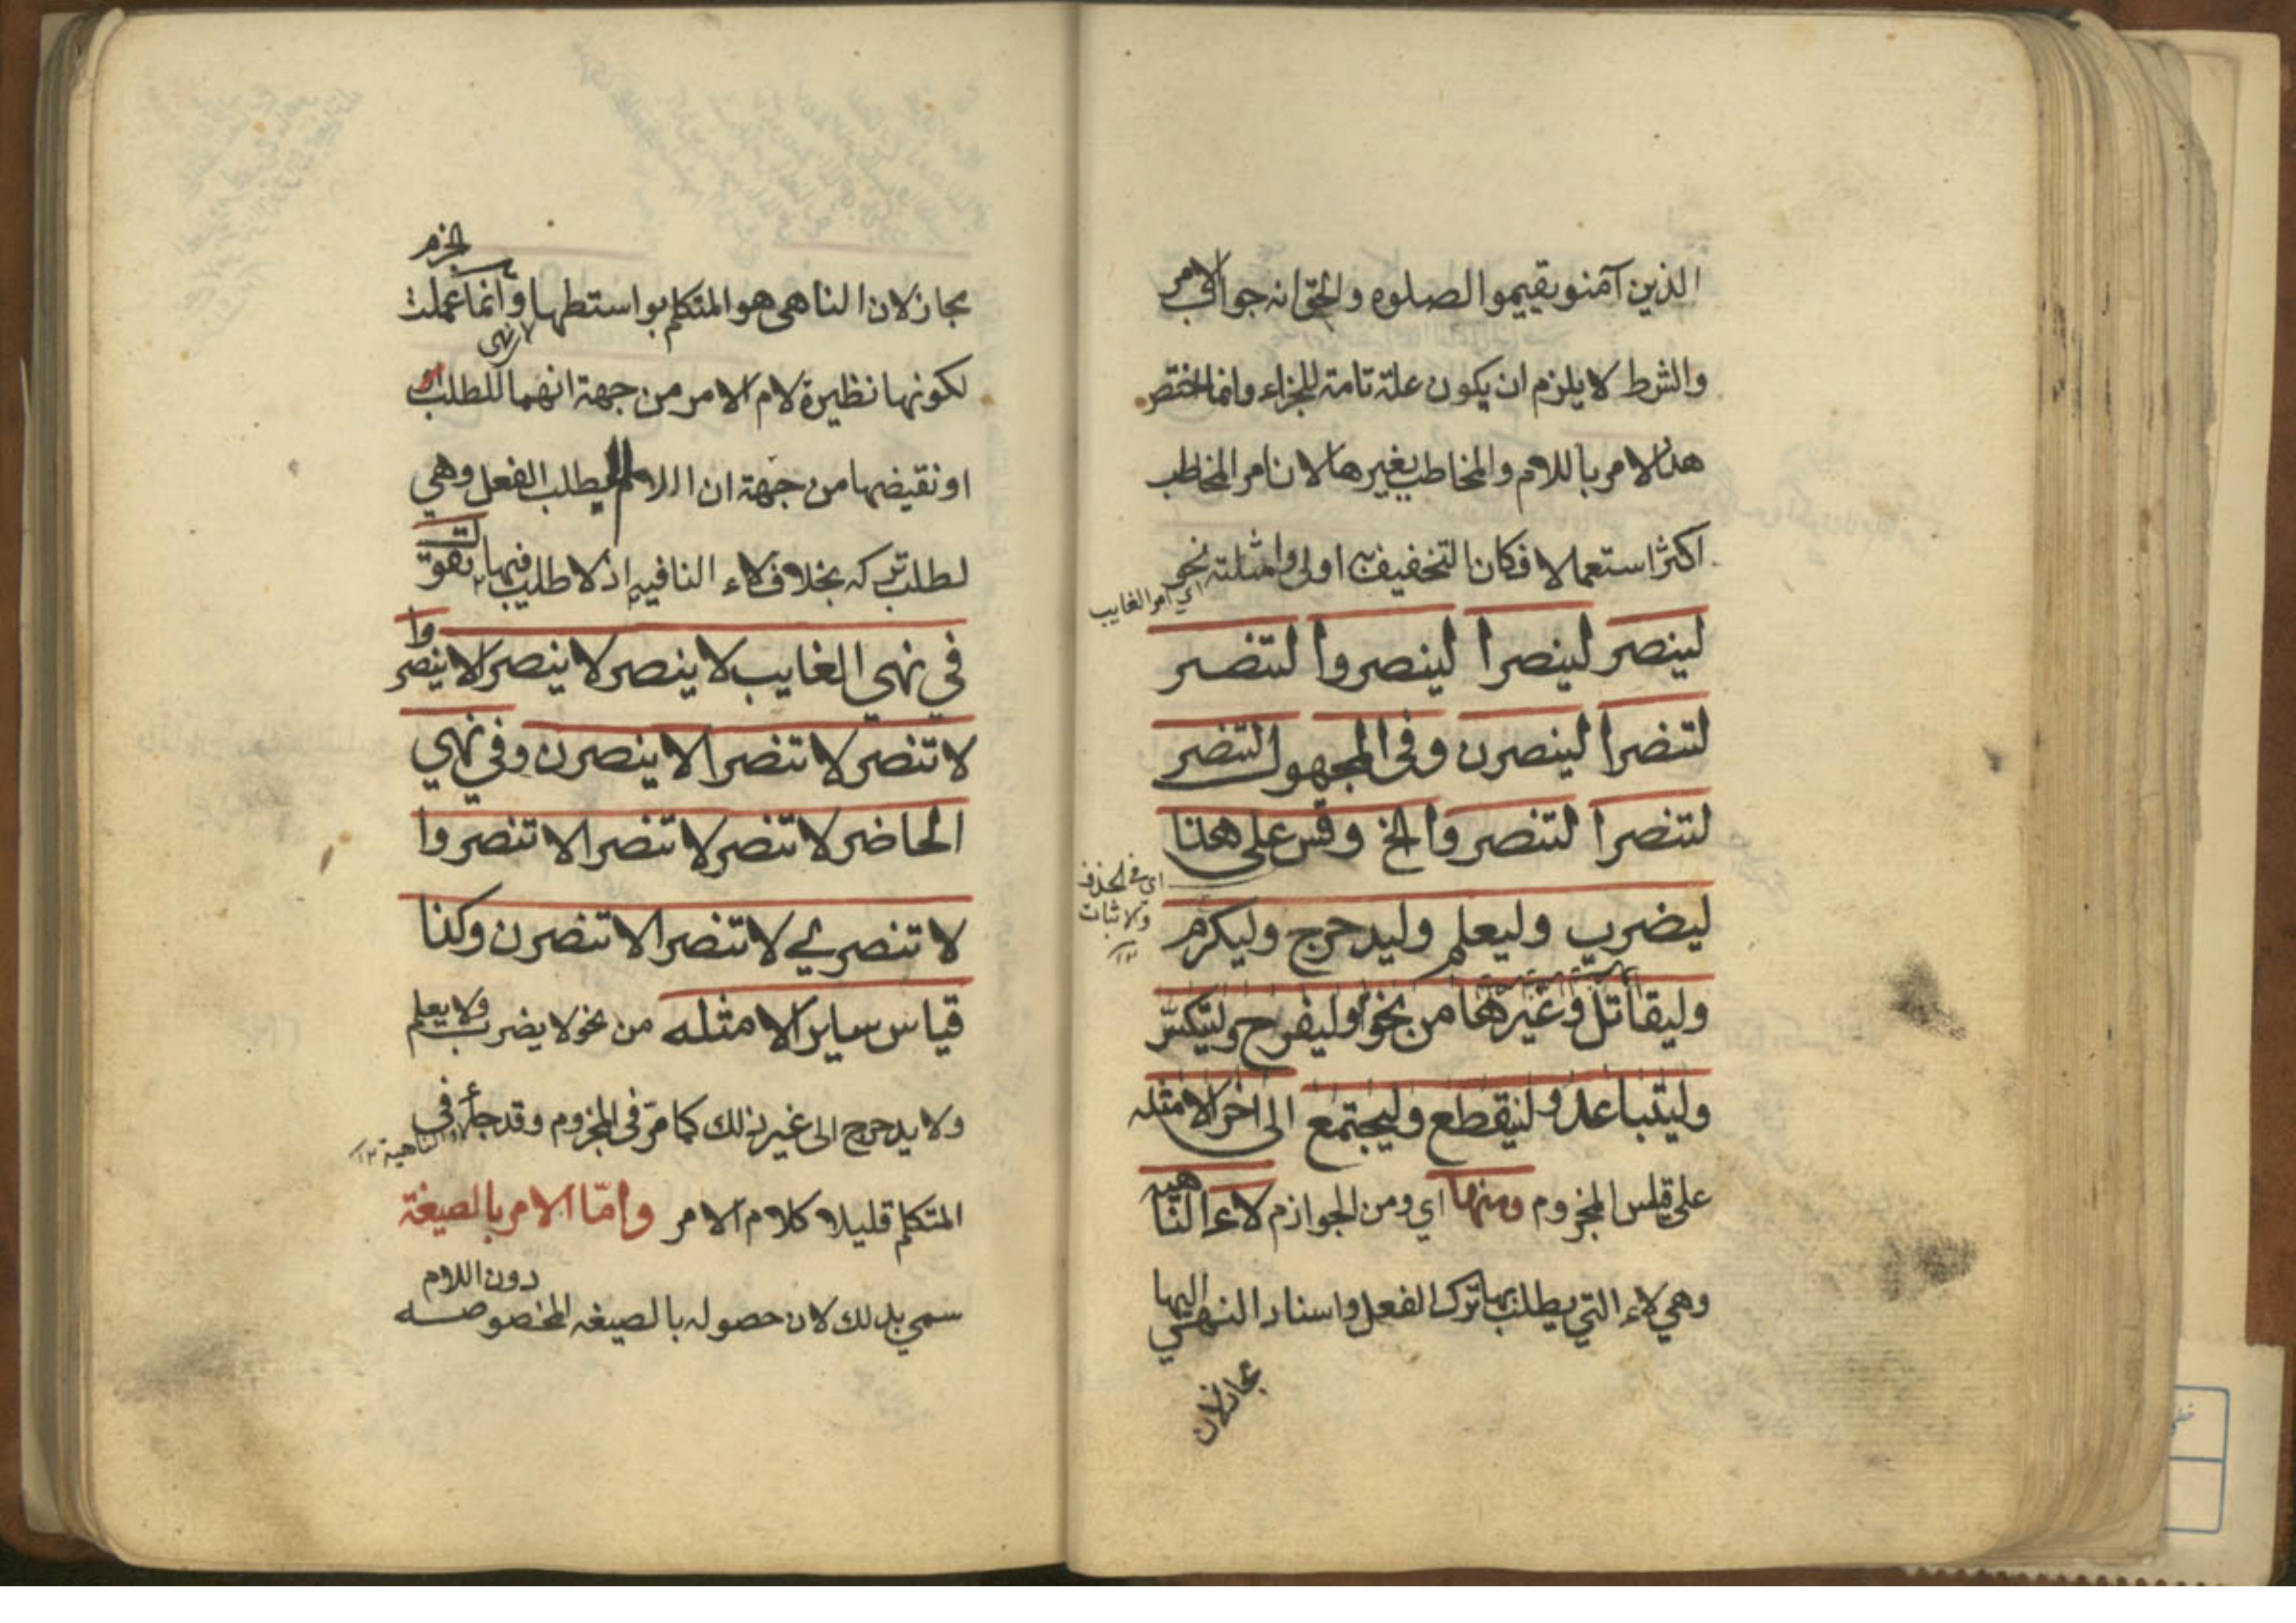 الذين آمنو يقيموا الصلوه والحق انه جواب الامر
والشرط لا يلزم ان يكون علة تامة للجزاء وانما اختص
هذا الامر باللام والمخاطب بغيرها لان امر المخاطب
اكثر استعمالا فكان التخفيف به اولى وامثلته نحو
اي امر الغايب
لينصر لينصرا لينصروا لتنصر
لتنصرا لينصرن وفى المجهول لتنصر
لتنصرا لتنصروا الخ وقس على هذا
اي في الحذف
والاثبات
١٢
ليضرب وليعلم وليدحرج وليكرم
وليقاتل وغيرها من نحو وليفرح وليتكسر
وليتباعد ولينقطع وليجتمع الى اخر الامثله
على قياس المجزوم ومنها اي ومن الجوازم لاء الناهيه
وهي لاء التي يطلب بها ترك الفعل واسناد النهي اليها
مجاز لان
مجاز لان الناهى هو المتكلم بواسطتها وانما عملت الجزم
لكونها نظيرة لام الامر من جهة انهما للطلب
او نقيضها من جهة ان اللام لطلب الفعل وهي
لطلب تركه بخلاف لاء النافيه اذ لا طلب فيها تقول
في نهى الغايب لا ينصر لا ينصرا لا ينصروا
لا تنصر لا تنصرا لا ينصرن وفي نهي
الحاضر لا تنصر لا تنصرا لا تنصروا
لا تنصري لا تنصرا لا تنصرن وكذا
قياس ساير الامثله من نحو لا يضرب ولا يعلم
ولا يدحرج الى غير ذلك كما مرّ فى المجزوم وقد جاء في
لاء الناهية ١٢
المتكلم قليلا كلام الامر وامّا الامر بالصيغة
سمي بذلك لان حصوله بالصيغه المخصوصه دون اللام